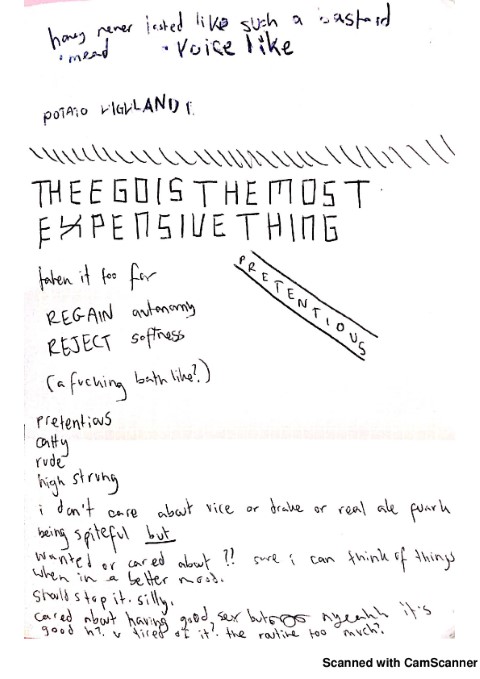 honey never tasted like such a bastard
mead • voice like
POTATO
THE EGO IS THE MOST
EXPENSIVE THING
PRETENTIOUS
taken it too far
REGAIN autonomy
REJECT softness
(a fucking bath like?)
pretentious
catty
rude
high strung
i don't care about vice or drake or real ale
being spiteful but
wanted or cared about ?! sure i can think of things
when in a better mood.
should stop it. silly.
cared about having good sex but nyeahh it's
good tired of it? the routine too much?
Scanned with CamScanner